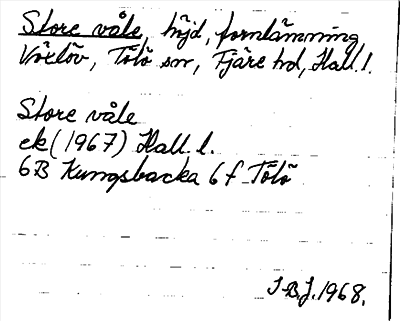 Store våle, höjd, fornlämning
Voxlöv, Tölö sn, Fjäre hd, Hall. l.
Store våle
ek (1967) Hall. l.
6B Kungsbacka 6f Tölö
I.B.J. 1968.